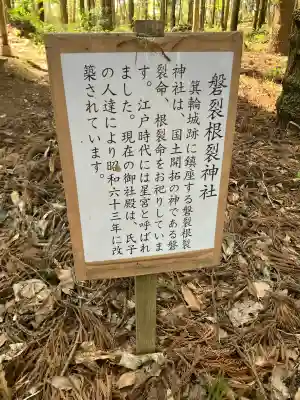 磐裂根裂神社
箕輪城跡に鎮座する磐裂根裂
神社は、国土開拓の神である磐
裂命、根裂命をお祀りしていま
す。江戸時代には星宮と呼ばれ
ました。現在の御社殿は、氏子
の人達により昭和六十三年に改
築されています。